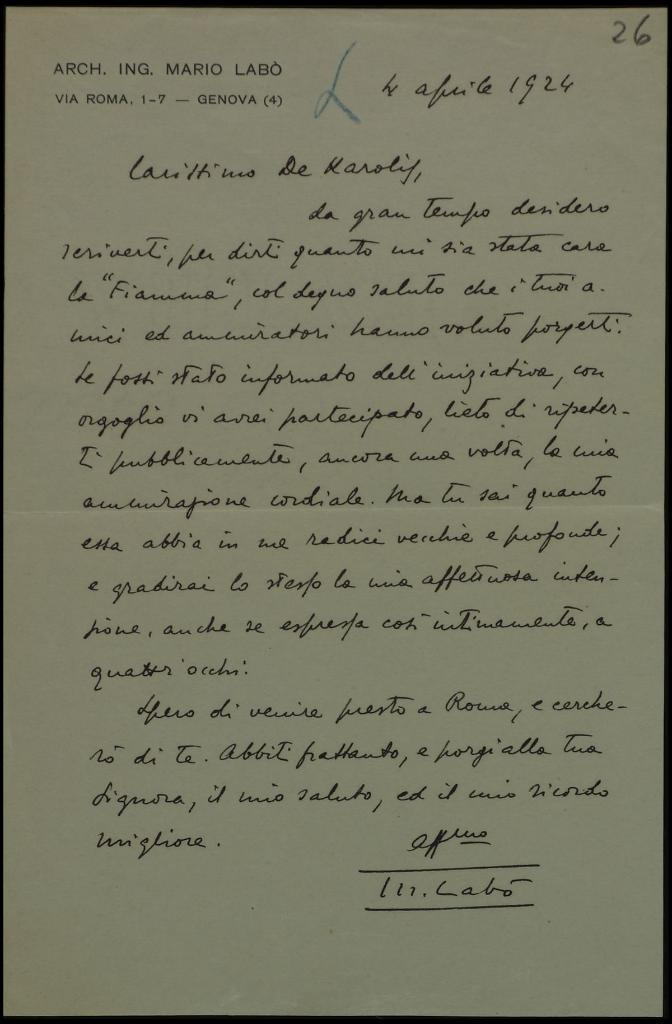 26
ARCH. ING. MARIO LABÒ
VIA ROMA, 1-7 — GENOVA (4)
4 aprile 1924
Carissimo De Karolis,
da gran tempo desidero
scriverti, per dirti quanto mi sia stata cara
la "Fiamma", col degno saluto che i tuoi a-
mici ed ammiratori hanno voluto porgerti.
Se fossi stato informato dell'iniziativa, con
orgoglio vi avrei partecipato, lieto di ripeter-
ti pubblicamente, ancora una volta, la mia
ammirazione cordiale. Ma tu sai quanto
essa abbia in me radici vecchie e profonde;
e gradirai lo stesso la mia affettuosa inten-
zione, anche se espressa così intimamente, a
quattr'occhi.
Spero di venire presto a Roma, e cerche-
rò di te. Abbiti frattanto, e porgi alla tua
Signora, il mio saluto, ed il mio ricordo
migliore.
aff.mo
M. Labò